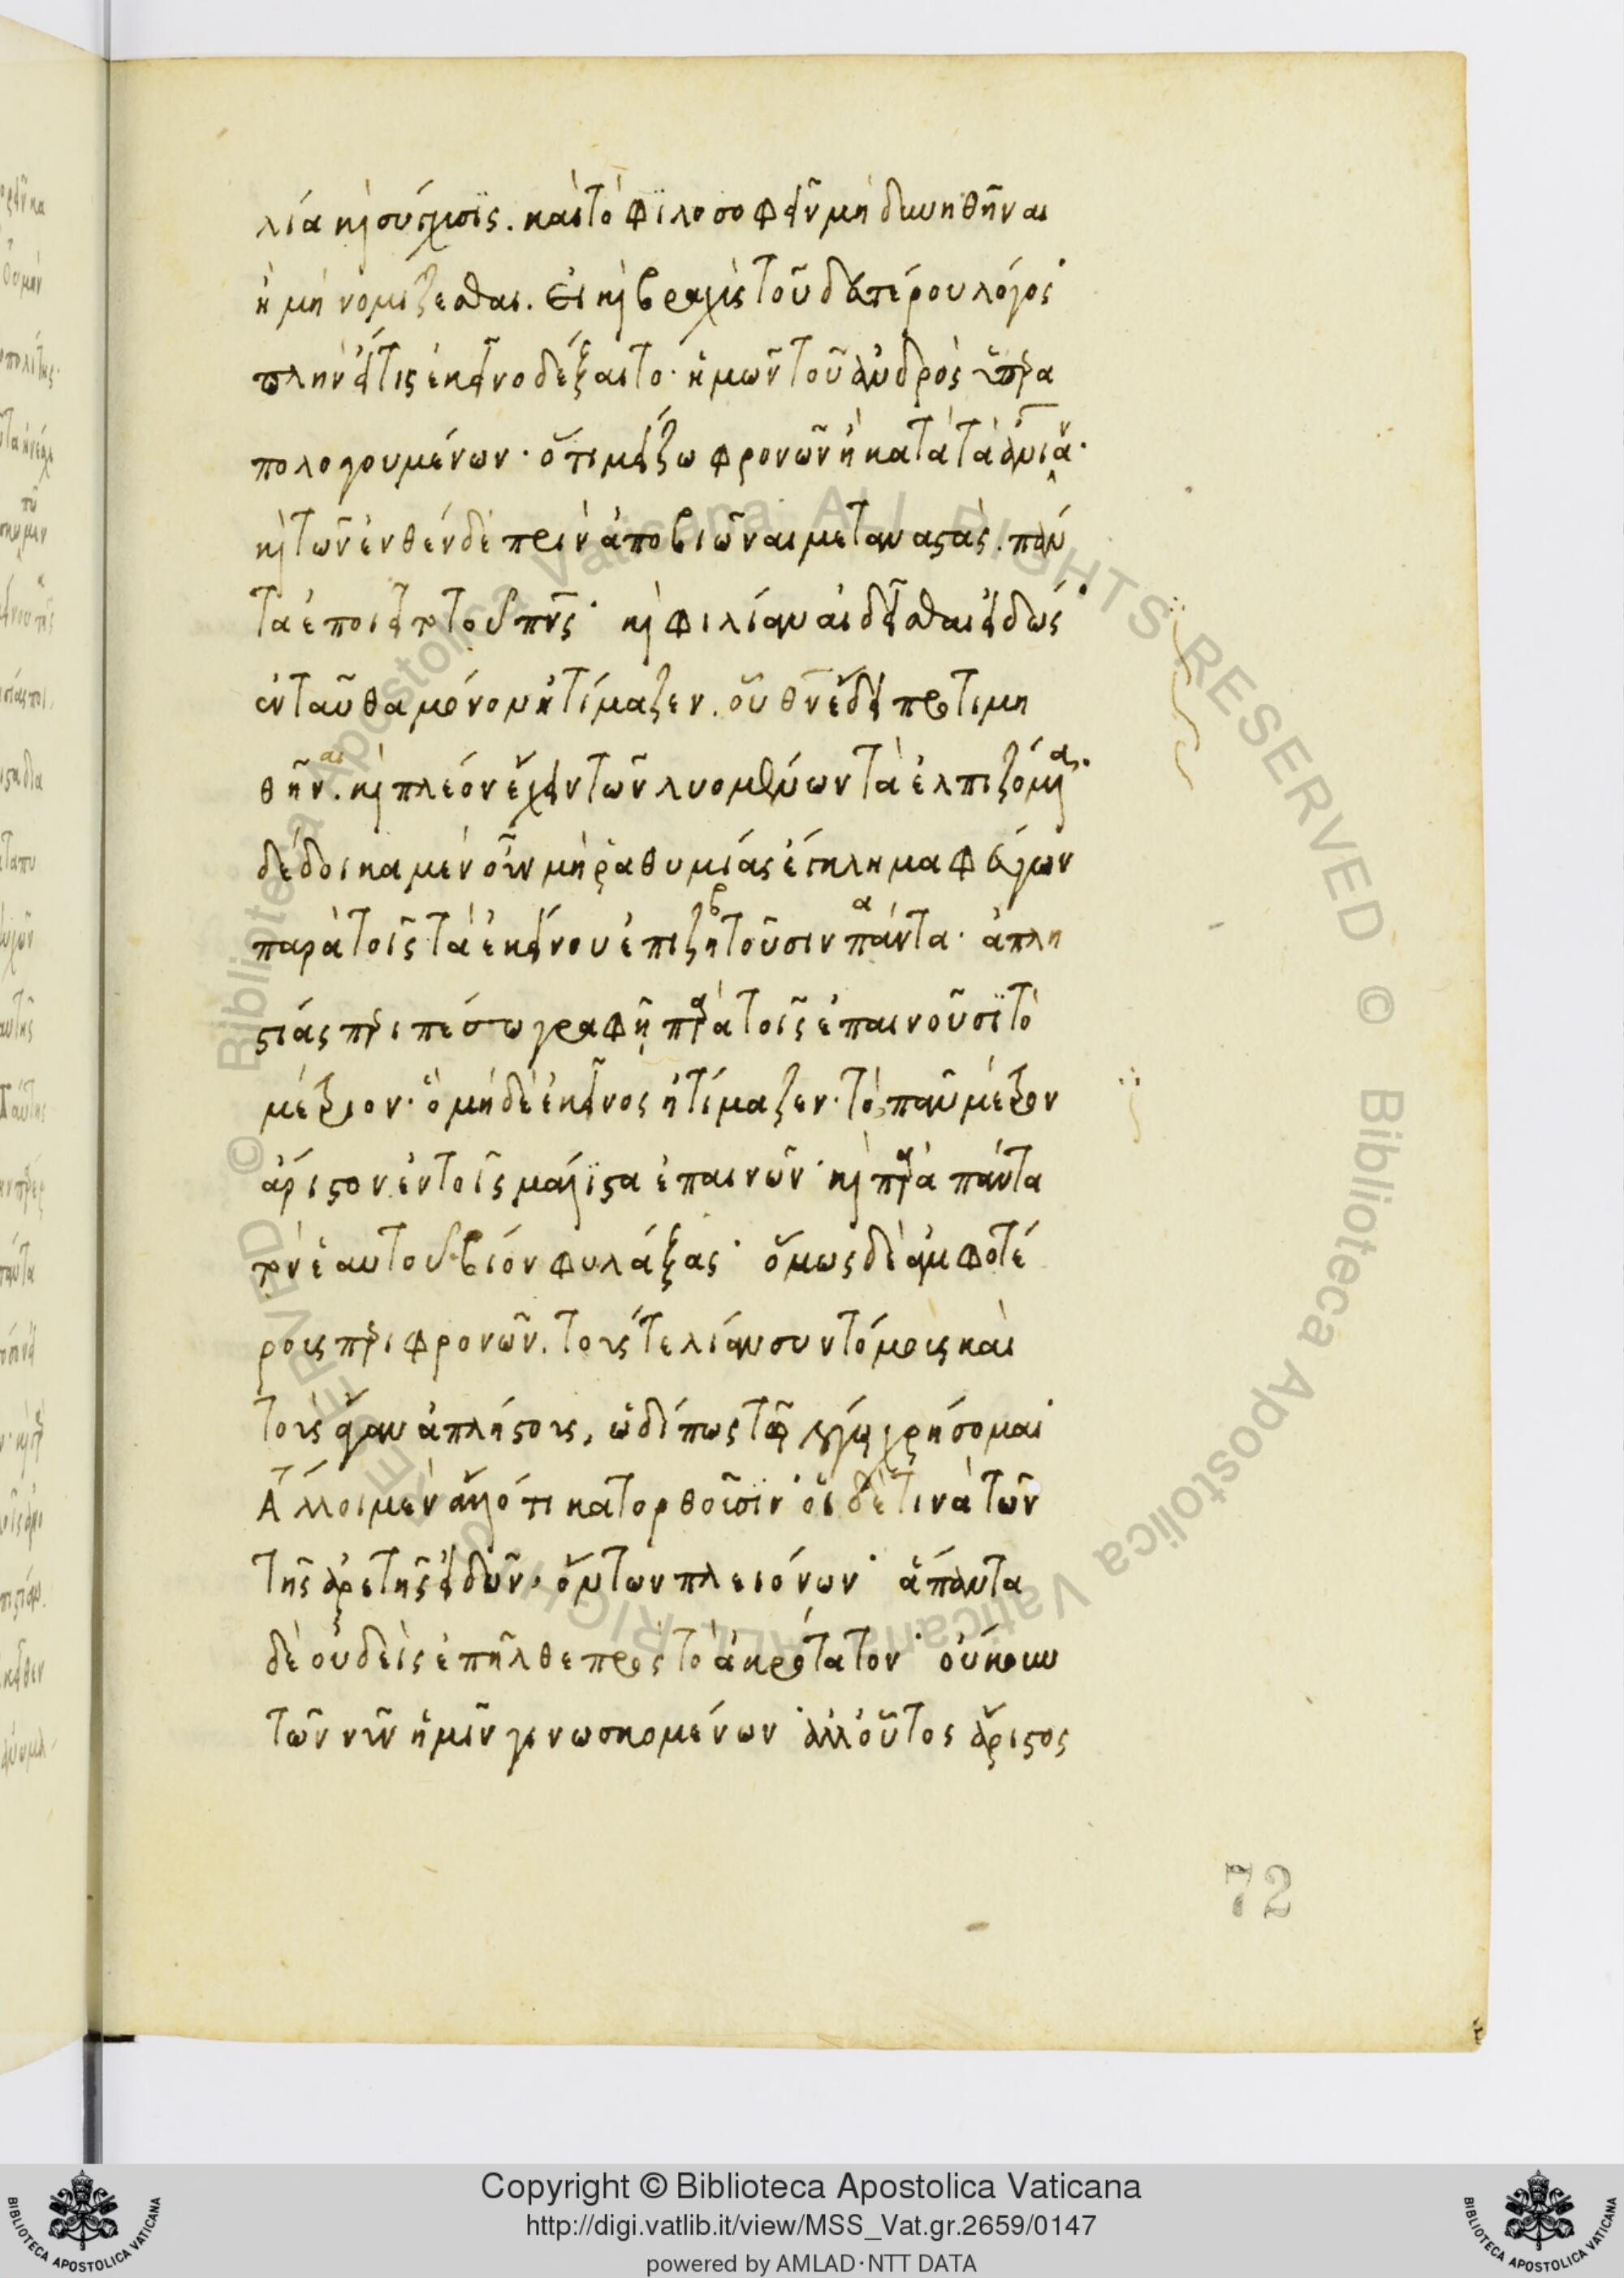 λία καὶ σύγχυσϊς. καὶ τὸ φϊλοσοφεῖν μὴ δυνηθῆναι
ἢ μὴ νομίζεσθαι. Εἰ καὶ βραχὺς τοῦ δευτέρου λόγος·
πλὴν εἴ τις ἐκεῖνο δέξαιτο· ἡμῶν τοῦ ἀνδρὸς ὑπερα
πολογουμένων· ὅτι μείζω φρονῶν ἢ κατὰ τὰ ἀνινα·
καὶ τῶν ἐνθένδε πρὶν ἀποβιῶναι μεταναστὰς. πάν
τα ἐποιεῖτο τοῦ πνς· καὶ φιλίαν αἰδεῖσθαι εἰδώς·
ἐνταῦθα μόνον ἠτίμαζεν. οὗ θν ἔδει προτιμη
θῆναι. καὶ πλέον ἔχειν τῶν λυομένων τὰ ἐλπιζόμενα·
δέδοικα μὲν οὖν μὴ ῥαθυμίας ἔγκλημα φεύγων
παρὰ τοῖς τὰ ἐκείνου ἐπιζητοῦσιν ἅπαντα· ἀπλη
στίας περιπέσω γραφῇ παρὰ τοῖς ἐπαινοῦσϊ τὸ
μέτριον· ὃ μηδὲ ἐκεῖνος ἠτίμαζεν· τό, πᾶν μέτρον
ἄριστον ἐν τοῖς μάλϊστα ἐπαινῶν· καὶ παρὰ πάντα
τὸν ἑαυτοῦ βίον φυλάξας· ὅμως δὲ ἀμφοτέ
ρους περιφρονῶν. τούς τε λίαν συντόμους καὶ
τοὺς ἄγαν ἀπλήστους, ὡδί πως τῷ λόγῳ χρήσομαι·
Ἄλλοι μὲν ἄλλό τι κατορθοῦσϊν· οἱ δέ τινα τῶν
τῆς ἀρετῆς εἰδῶν, ὄντων πλειόνων· ἅπαντα
δὲ οὐδεὶς ἐπῆλθε πρὸς τὸ ἀκρότατον· οὔκουν
τῶν νῦν ἡμῖν γινωσκομένων· ἀλλ οὗτος ἄριστος
72
Copyright © Biblioteca Apostolica Vaticana
http://digi.vatlib.it/view/MSS_Vat.gr.2659/0147
powered by AMLAD·NTT DATA